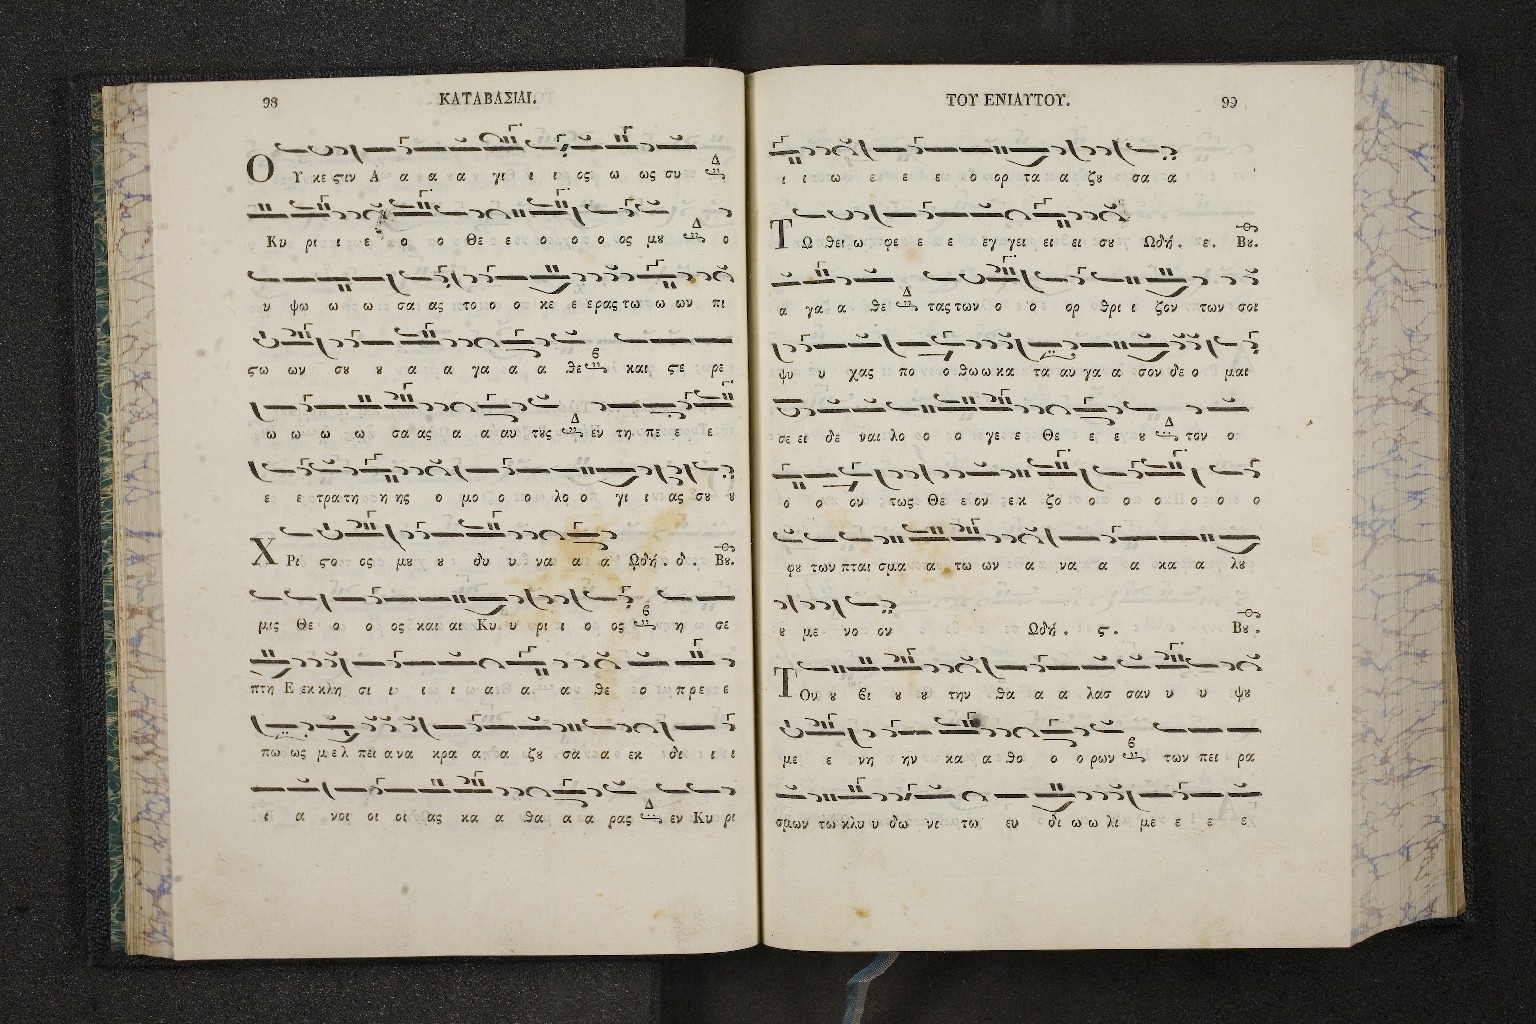 98
ΚΑΤΑΒΑΣΙΑΙ.
ΟΥ κε ϛιν Α α α α γι ι ι ος ω ως συ Δ
Κυ ρι ι ε ο ο Θε ε ο ο ο ο ος μȣ Δ ο
υ ψω ω ω σα ας το ο ο κε ε ερας τω ω ων πι
ϛω ων σȣ ȣ α α γα α α θε ϐ και ϛε ρε
ω ω ω ω σα ας α α αυ τȣς Δ εν τη πε ε ε
ε ε τρα τη η ης ο μο ο ο λο ο γι ι ας σȣ ȣ
ΧΡι ϛο ος μȣ ȣ δυ υ να α α Ωδή. δ. Βȣ.
μις Θε ο ο ος και αι Κυ υ ρι ι ο ος ϐ η σε
πτη Ε εκ κλη σι ι ι ι α α α θε ο πρε ε
πω ως μελ πει α να κρα α α ζȣ σα α εκ δι ι ι
ι α νοι οι οι ας κα α θα α α ρας Δ εν Κυ ρι
ΤΟΥ ΕΝΙΑΥΤΟΥ.
99
ι ι ω ε ε ε ο ορ τα α ζȣ σα α
ΤΩ θει ω φε ε ε εγ γει ει ει σȣ Ωδή. ε. Βȣ.
α γα α θε Δ τας των ο ο ορ θρι ι ζον των σοι
ψυ υ χας πο ο θω ω κα τα αυ γα α σον δε ο μαι
σε ει δε ναι λο ο ο γε ε Θε ε ε ȣ Δ τον ο
ο ο ον τως Θε ε ον εκ ζο ο ο ο ο ο ο
φȣ των πται σμα α τω ων α να α α κα α λȣ
ȣ με νο ον Ωδή. ϛ. Βȣ.
ΤΟν ȣ ϐι ȣ ȣ την θα α α λασ σαν υ υ ψȣ
με ε νη ην κα α θο ο ο ρων ϐ των πει ρα
σμων τω κλυ υ δω νι τω ευ δι ω ω λι με ε ε ε